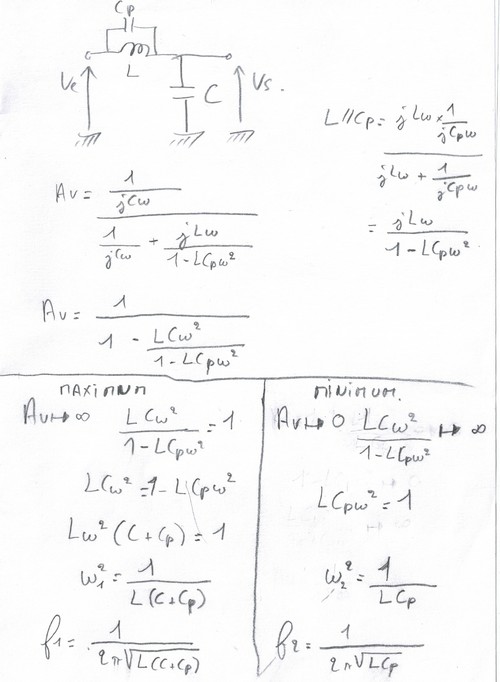 Cp
L
Ve
C
Vs.
L//Cp = jLω × 1/jCpω / jLω + 1/jCpω
= jLω / 1 - LCpω²
Av = 1/jCω / 1/jCω + jLω / 1 - LCpω²
Av = 1 / 1 - LCω² / 1 - LCpω²
MAXIMUM
Av ↦ ∞ LCω² / 1 - LCpω² = 1
LCω² = 1 - LCpω²
Lω² (C + Cp) = 1
ω₁² = 1 / L(C+Cp)
f1 = 1 / 2π√L(C+Cp)
MINIMUM.
Av ↦ 0 LCω² / 1 - LCpω² ↦ ∞
LCpω² = 1
ω₂² = 1 / LCp
f2 = 1 / 2π√LCp